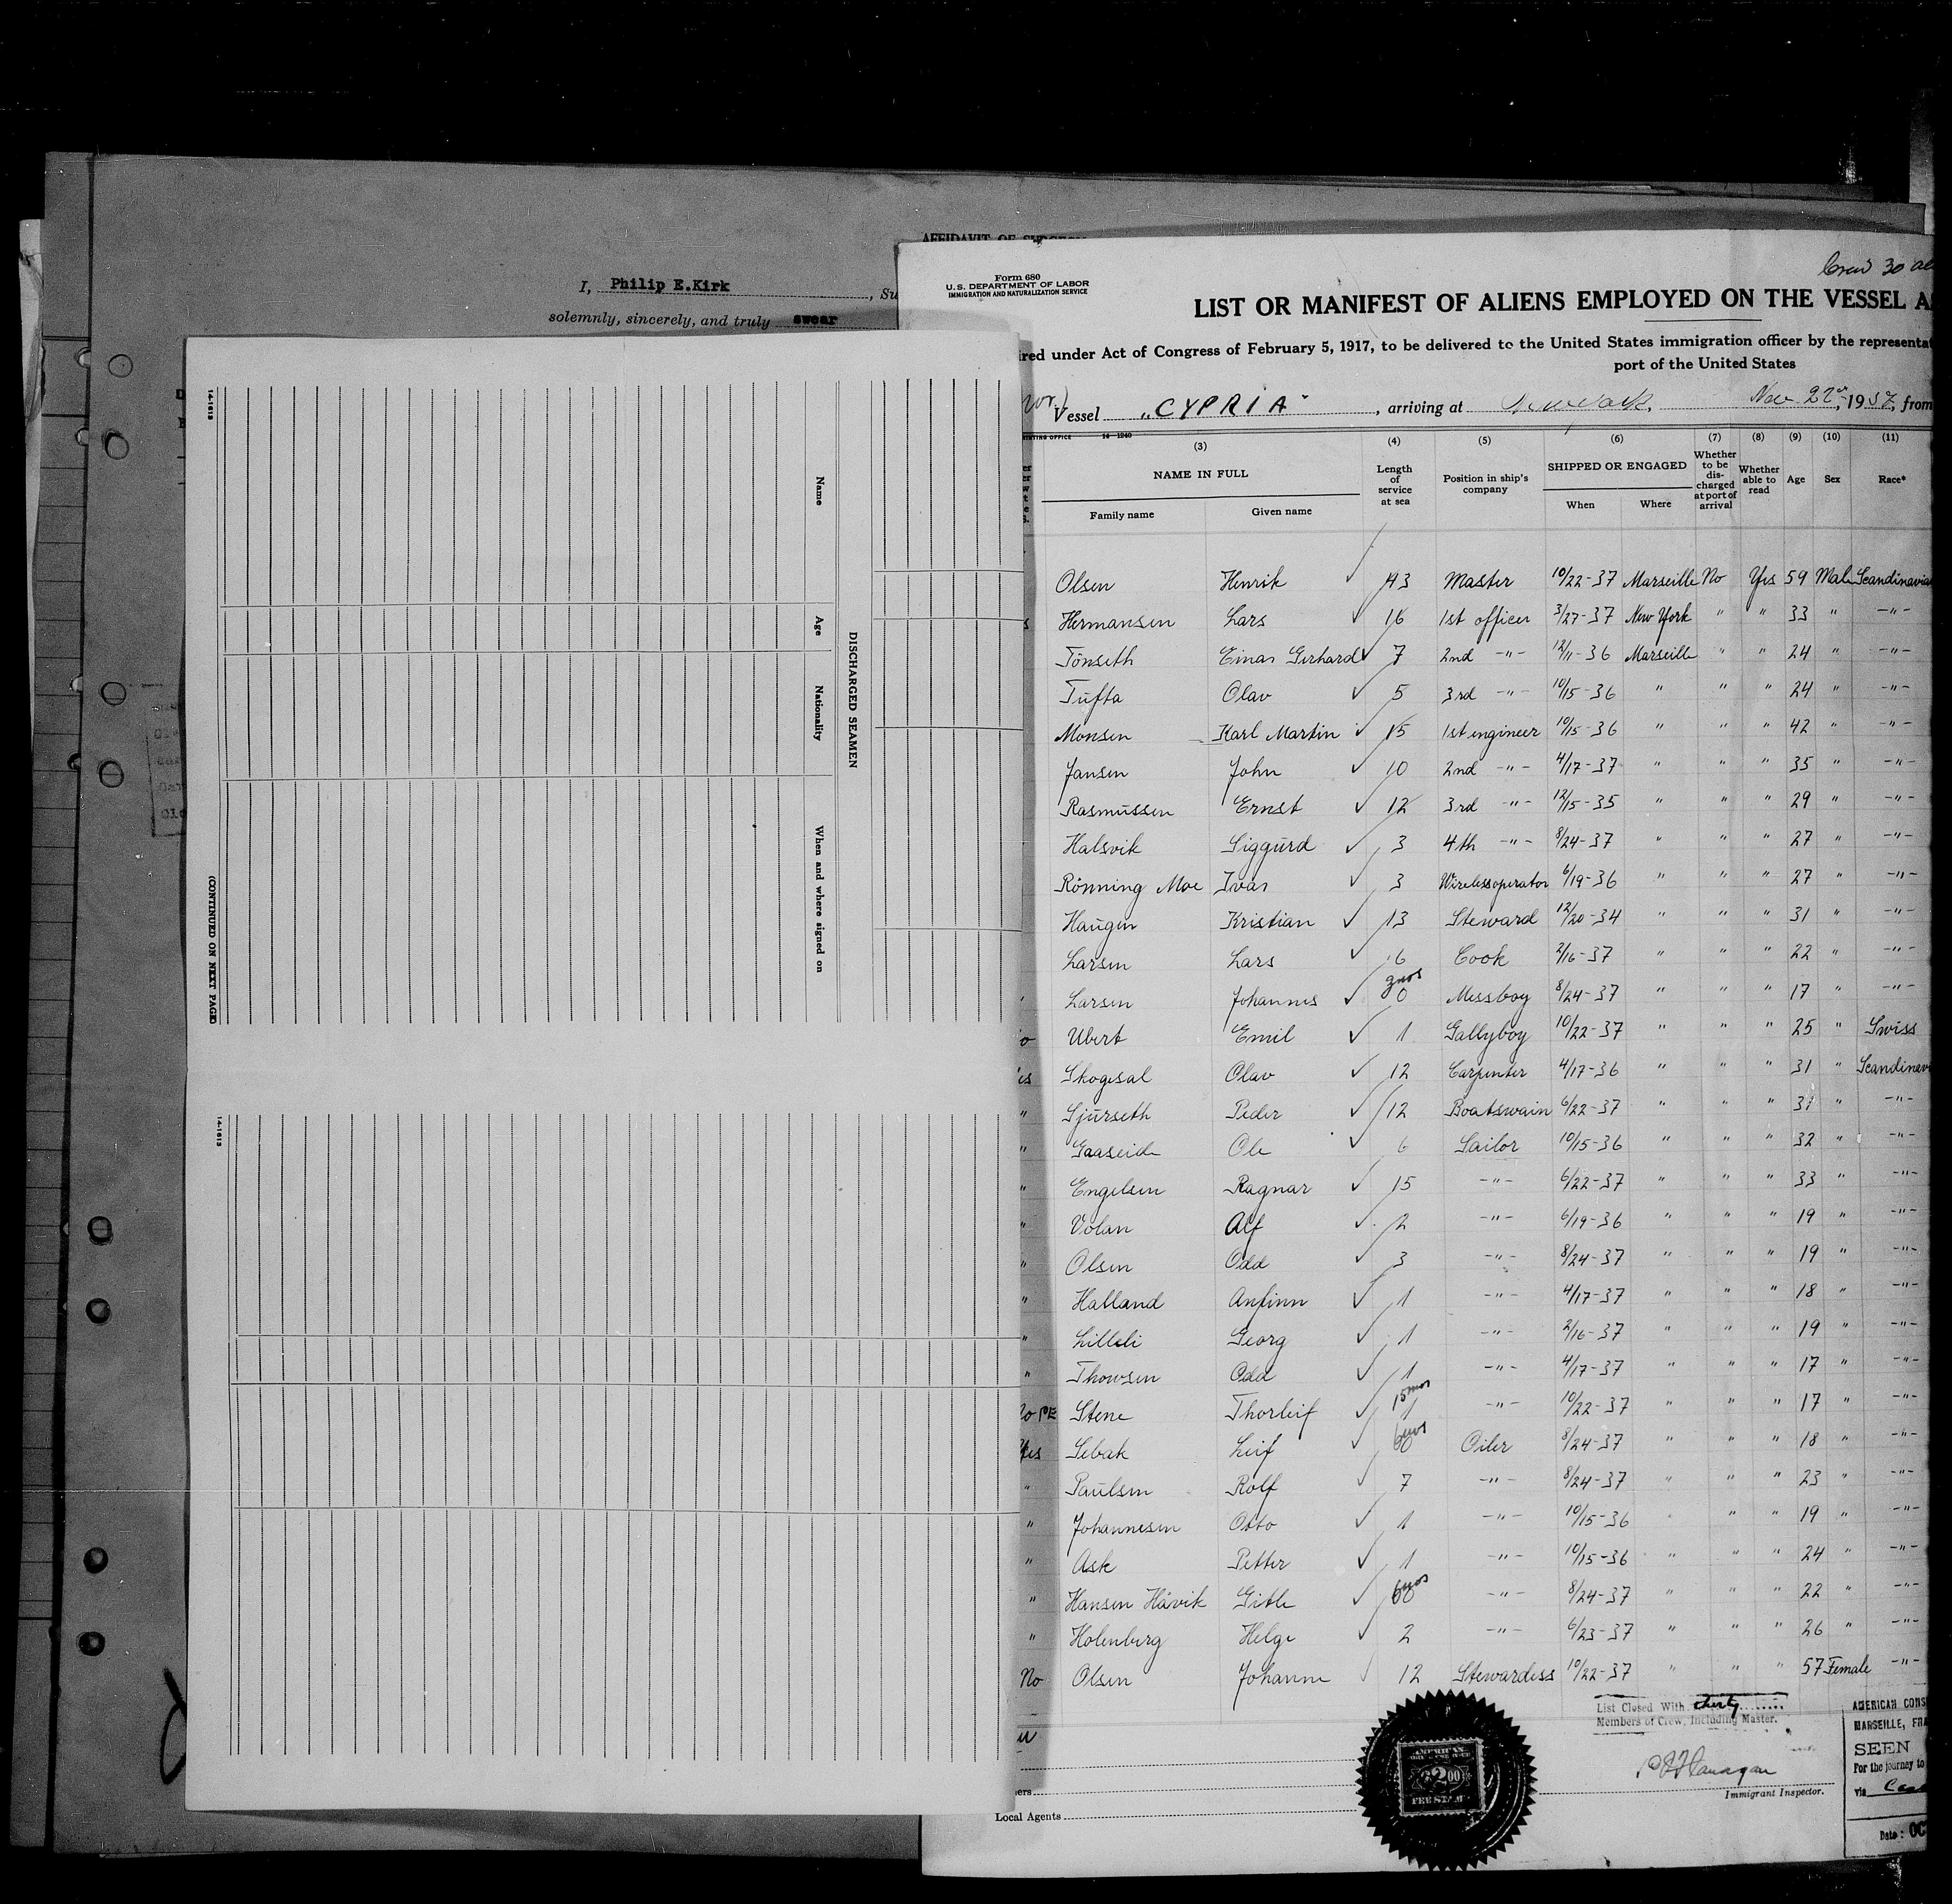 AFFIDAVIT OF SURGEON
I, Philip E.Kirk, Su
solemnly, sincerely, and truly swear
14-1613
Name
Age
Nationality
When and where signed on
DISCHARGED SEAMEN
(CONTINUED ON NEXT PAGE)
14-1613
Form 680
U.S. DEPARTMENT OF LABOR
IMMIGRATION AND NATURALIZATION SERVICE
Crew 30
LIST OR MANIFEST OF ALIENS EMPLOYED ON THE VESSEL A
ired under Act of Congress of February 5, 1917, to be delivered to the United States immigration officer by the representat
port of the United States
Vessel "CYPRIA", arriving at New York, Nov 22, 1937, from
14—1240
(3) (4) (5) (6) (7) (8) (9) (10) (11)
NAME IN FULL
Family name Given name
Length of service at sea
Position in ship's company
SHIPPED OR ENGAGED
When Where
Whether to be discharged at port of arrival
Whether able to read
Age
Sex
Race*
Olsen Henrik ✓ 43 Master 10/22-37 Marseille No Yes 59 Male Scandinavia
Hermansen Lars ✓ 16 1st officer 3/27-37 New York " " 33 " -"-
Tönseth Einar Gerhard ✓ 7 2nd -"- 12/11-36 Marseille " " 24 " -"-
Tufta Olav ✓ 5 3rd -"- 10/15-36 " " " 24 " -"-
Monsen Karl Martin ✓ 15 1st engineer 10/15-36 " " " 42 " -"-
Jansen John ✓ 10 2nd -"- 4/17-37 " " " 35 " -"-
Rasmussen Ernst ✓ 12 3rd -"- 12/15-35 " " " 29 " -"-
Halsvik Siggurd ✓ 3 4th -"- 8/24-37 " " " 27 " -"-
Rönning Moe Ivar ✓ 3 Wirelessoperator 6/19-36 " " " 27 " -"-
Haugen Kristian ✓ 13 Steward 12/20-34 " " " 31 " -"-
Larsen Lars ✓ 6 Cook 2/16-37 " " " 22 " -"-
Larsen Johannes ✓ 0 Messboy 8/24-37 " " " 17 " -"-
Ubert Emil ✓ 1 Gallyboy 10/22-37 " " " 25 " Swiss
Skogesal Olav ✓ 12 Carpenter 4/17-36 " " " 31 " Scandinav
" Gjurseth Peder ✓ 12 Boatswain 6/22-37 " " " 31 " -"-
" Gaaseide Ole ✓ 6 Sailor 10/15-36 " " " 32 " -"-
" Engelsen Ragnar ✓ 15 -"- 6/22-37 " " " 33 " -"-
" Volan Alf ✓ 2 -"- 6/19-36 " " " 19 " -"-
" Olsen Odd ✓ 3 -"- 8/24-37 " " " 19 " -"-
" Halland Anfinn ✓ 1 -"- 4/17-37 " " " 18 " -"-
" Lilleli Georg ✓ 1 -"- 2/16-37 " " " 19 " -"-
" Thowsen Odd ✓ 1 -"- 4/17-37 " " " 17 " -"-
No PE Stene Thorleif ✓ 15mos 1 -"- 10/22-37 " " " 17 " -"-
Yes Sebak Leif ✓ 6mos Oiler 8/24-37 " " " 18 " -"-
" Paulsen Rolf ✓ 7 -"- 8/24-37 " " " 23 " -"-
" Johannesen Otto ✓ 1 -"- 10/15-36 " " " 19 " -"-
" Ask Petter ✓ 1 -"- 10/15-36 " " " 24 " -"-
" Hansen Håvik Gitle ✓ 6mos -"- 8/24-37 " " " 22 " -"-
" Holenberg Helge ✓ 2 -"- 6/23-37 " " " 26 " -"-
No Olsen Johanne ✓ 12 Stewardess 10/22-37 " " " 57 Female -"-
List Closed With thirty
Members of Crew, Including Master.
Flanagan
Immigrant Inspector.
ers
Local Agents
AMERICAN
$2.00
FEE STAMP
AMERICAN CONS
MARSEILLE, FRA
SEEN
For the journey to
via
Date: OC